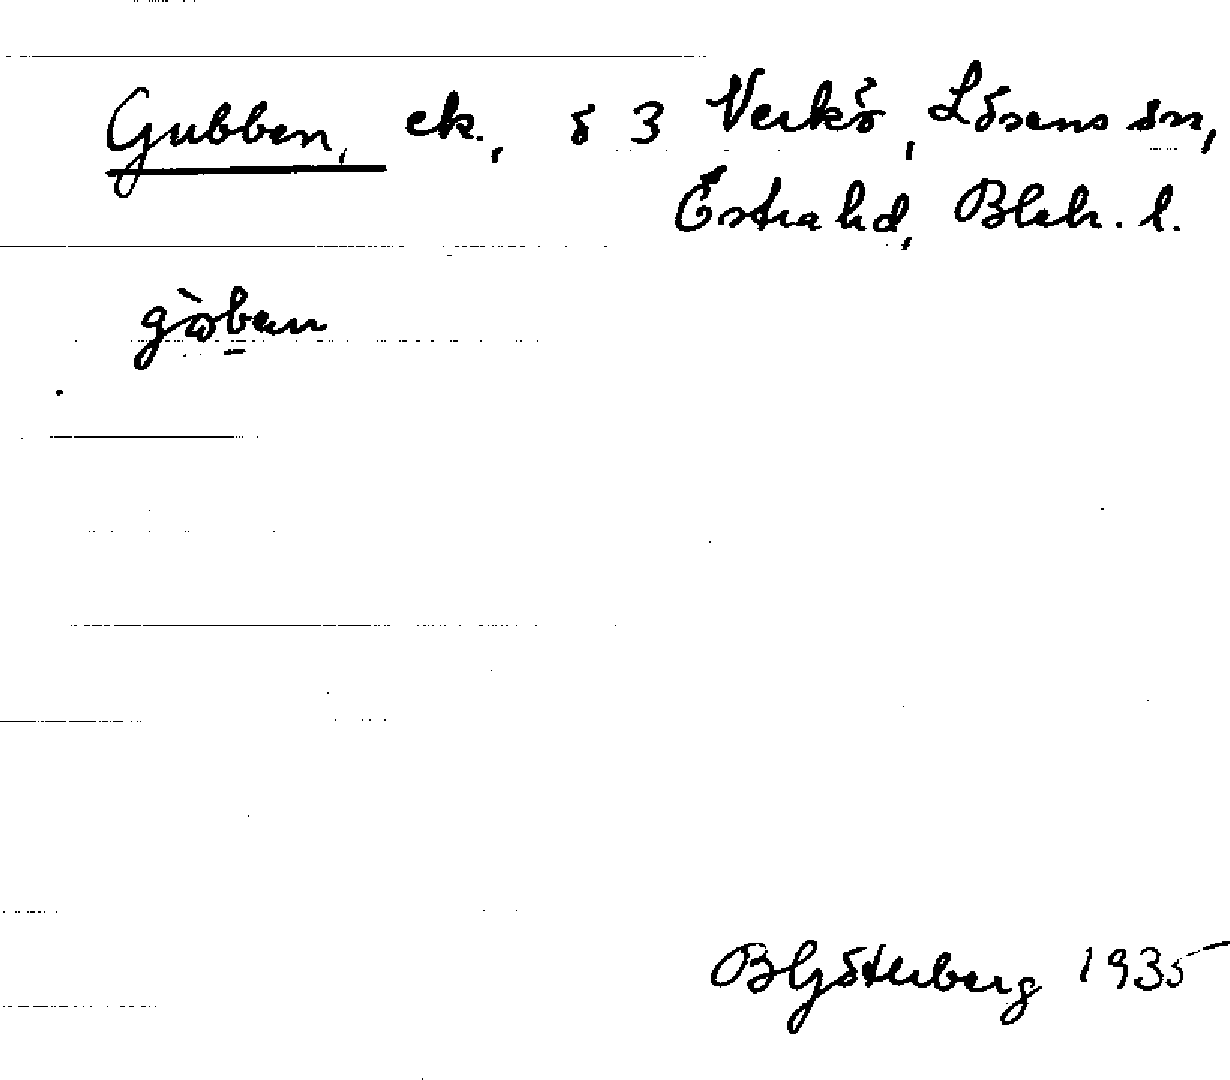 Gubben, ek., å 3 Verkö, Lösens sn,
Östra hd, Blek. l.
gòban
B Göterberg 1935